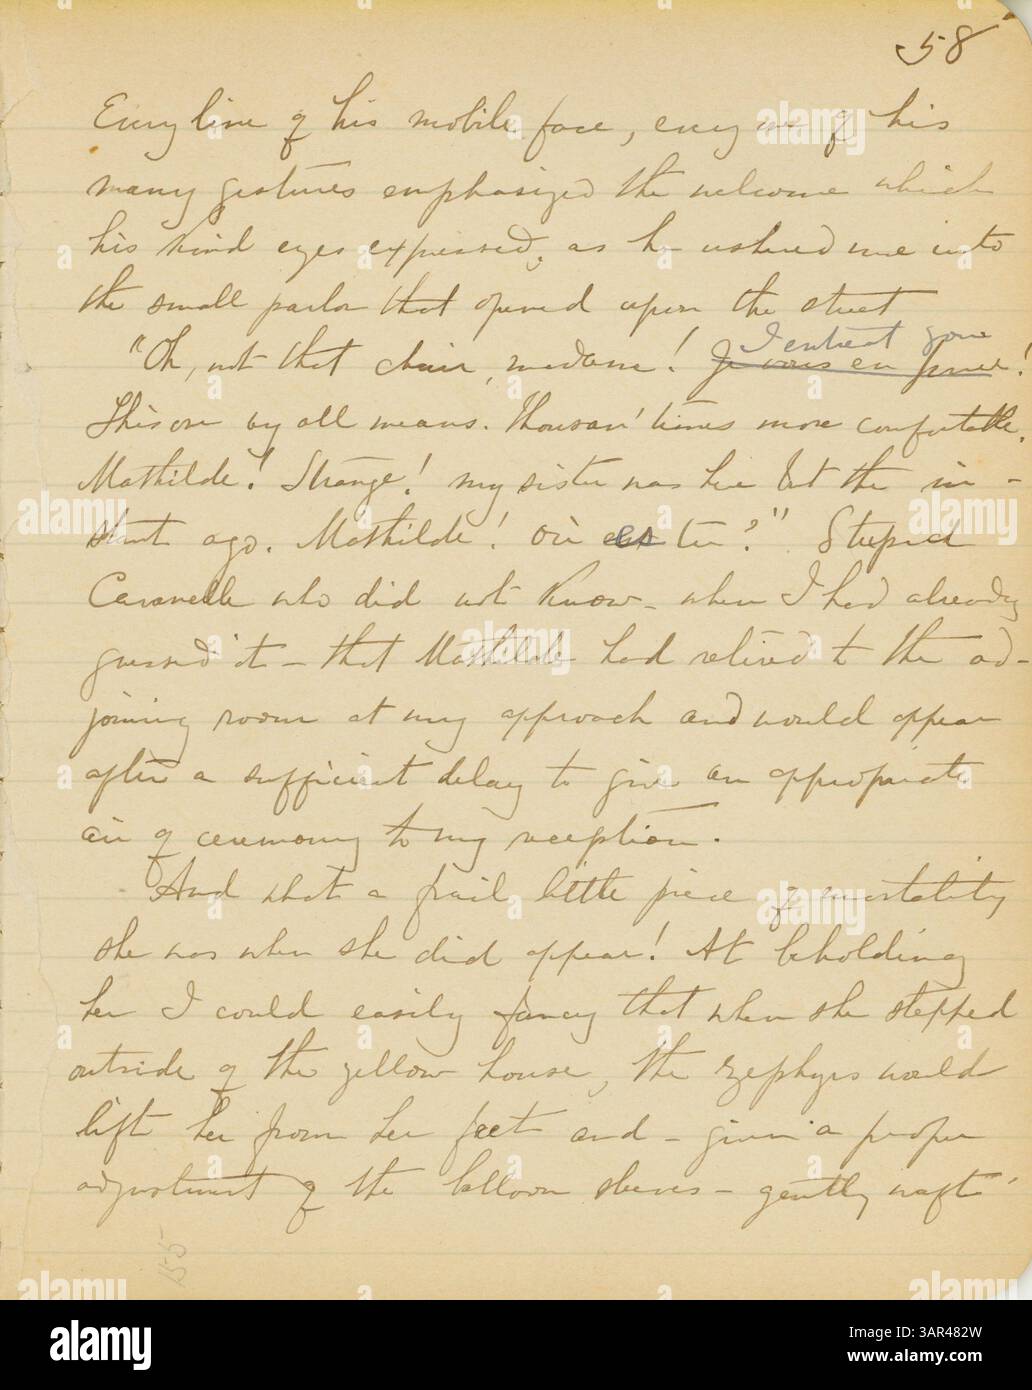 58
Every line of his mobile face, every one of his
many gestures emphasized the welcome which
his kind eyes expressed, as he ushered me into
the small parlor that opened upon the street
I entreat you
"Oh, not that chair, madame! Je vous en prie!
This one by all means. Thousan' times more comfortable.
Mathilde! Strange! my sister was here but the in-
stant ago. Mathilde! où es tu?" Stupid
Caravelle who did not know - when I had already
guessed it - that Mathilde had retired to the ad-
joining room at my approach and would appear
after a sufficient delay to give an appropriate
air of ceremony to my reception.
And what a frail little piece of mortality
she was when she did appear! At beholding
her I could easily fancy that when she stepped
outside of the yellow house, the zephyrs would
lift her from her feet and - given a proper
adjustment of the balloon sleeves - gently waft
155
alamy
Image ID: 3AR482W
www.alamy.com